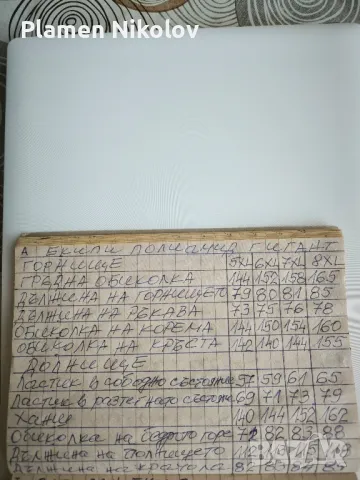 Plamen Nikolov
А ЕКИПИ ПОЛИАМИД ГИГАНТ
ГОРНИЩЕ 5XL 6XL 7XL 8XL
ГРЪДНА ОБИКОЛКА 144 152 158 165
ДЪЛЖИНА НА ГОРНИЩЕТО 79 80 81 85
ДЪЛЖИНА НА РЪКАВА 73 75 76 78
ОБИКОЛКА НА КОРЕМА 144 150 154 160
ОБИКОЛКА НА КРЪСТА 142 140 144 155
ДОЛНИЩЕ
Ластик в свободно състояние 57 59 61 65
Ластик в разтегнато състоян 69 71 73 79
Ханш 140 144 152 162
Обиколка на бедрото горе 82 83 88
Дължина на долнището
Дължина на крачола